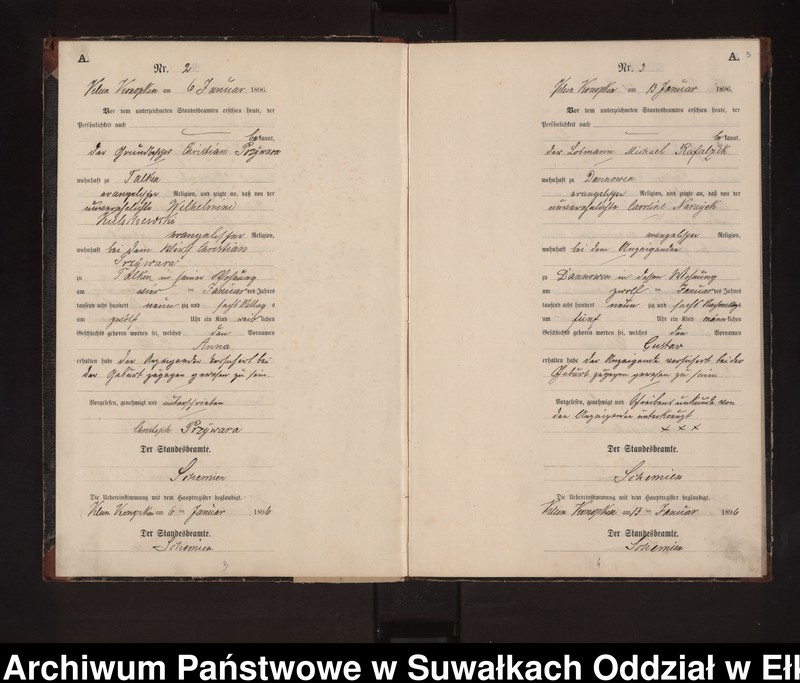 A.
Nr. 2
Klein Konopken am 6 Januar 1896.
Vor dem unterzeichneten Standesbeamten erschien heute, der
Persönlichkeit nach
bekannt,
der Grundbesitzer Christian Przywara
wohnhaft zu Talken
evangelischer Religion, und zeigte an, daß von der
unverehelichte Wilhelmine
evangelischer Religion,
wohnhaft bei dem Wirth Christian
Przywara
zu Talken in seiner Wohnung
am vier ten Januar des Jahres
tausend acht hundert neun zig und sechs Mittag s
um zwölf Uhr ein Kind weib lichen
Geschlechts geboren worden sei, welches den Vornamen
Anna
erhalten habe der Anzeigende versichert bei
der Geburt zugegen gewesen zu sein
Vorgelesen, genehmigt und unterschrieben
Christoph Przywara
Der Standesbeamte.
Schemien
Die Uebereinstimmung mit dem Hauptregister beglaubigt.
Klein Konopken am 6 ten Januar 1896
Der Standesbeamte.
Schemien
3
A.
3
Nr. 3
Klein Konopken am 13 Januar 1896.
Vor dem unterzeichneten Standesbeamten erschien heute, der
Persönlichkeit nach
bekannt,
der Losmann Michael Rafalzik
wohnhaft zu Dannowen
evangelischer Religion, und zeigte an, daß von der
unverehelichte Caroline
evangelischer Religion,
wohnhaft bei dem Anzeigenden
zu Dannowen in dessen Wohnung
am zwölf ten Januar des Jahres
tausend acht hundert neun zig und sechs Nachmittags
um fünf Uhr ein Kind männ lichen
Geschlechts geboren worden sei, welches den Vornamen
Gustav
erhalten habe der Anzeigende versichert bei der
Geburt zugegen gewesen zu sein
Vorgelesen, genehmigt und Schreibensunkunde von
den Anzeigenden unterkreuzt
x x x
Der Standesbeamte.
Schemien
Die Uebereinstimmung mit dem Hauptregister beglaubigt.
Klein Konopken am 13 ten Januar 1896
Der Standesbeamte.
Schemien
4
Archiwum Państwowe w Suwałkach Oddział w Ełk